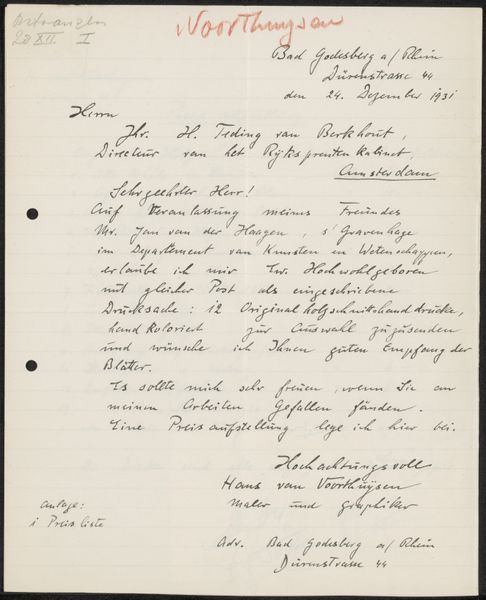 Voorthuysen
20 XII I
Bad Godesberg a/Rhein
Dürenstrasse 44
den 24. Dezember 1931
Herrn
Jhr. H. Teding van Berkhout,
Directeur van het Rijksprenten kabinet,
Amsterdam
Sehrgeehrter Herr!
Auf Veranlassung meines Freundes
Mr. Jan van der Haagen, s' Gravenhage
im Departement van Kunsten en Wetenschappen,
erlaube ich mir Ew. Hochwohlgeboren
mit gleicher Post als eingeschriebene
Drucksache: 12 Original holzschnitthanddrucke,
handkoloriert zur Auswahl zuzusenden
und wünsche ich Ihnen guten Empfang der
Blätter.
Es sollte mich sehr freuen, wenn Sie an
meinen Arbeiten Gefallen fänden.
Eine Preisaufstellung lege ich hier bei.
Hochachtungsvoll
Hans van Voorthuysen
Maler und Graphiker
anlage:
1 Preisliste
Adr. Bad Godesberg a/Rhein
Dürenstrasse 44